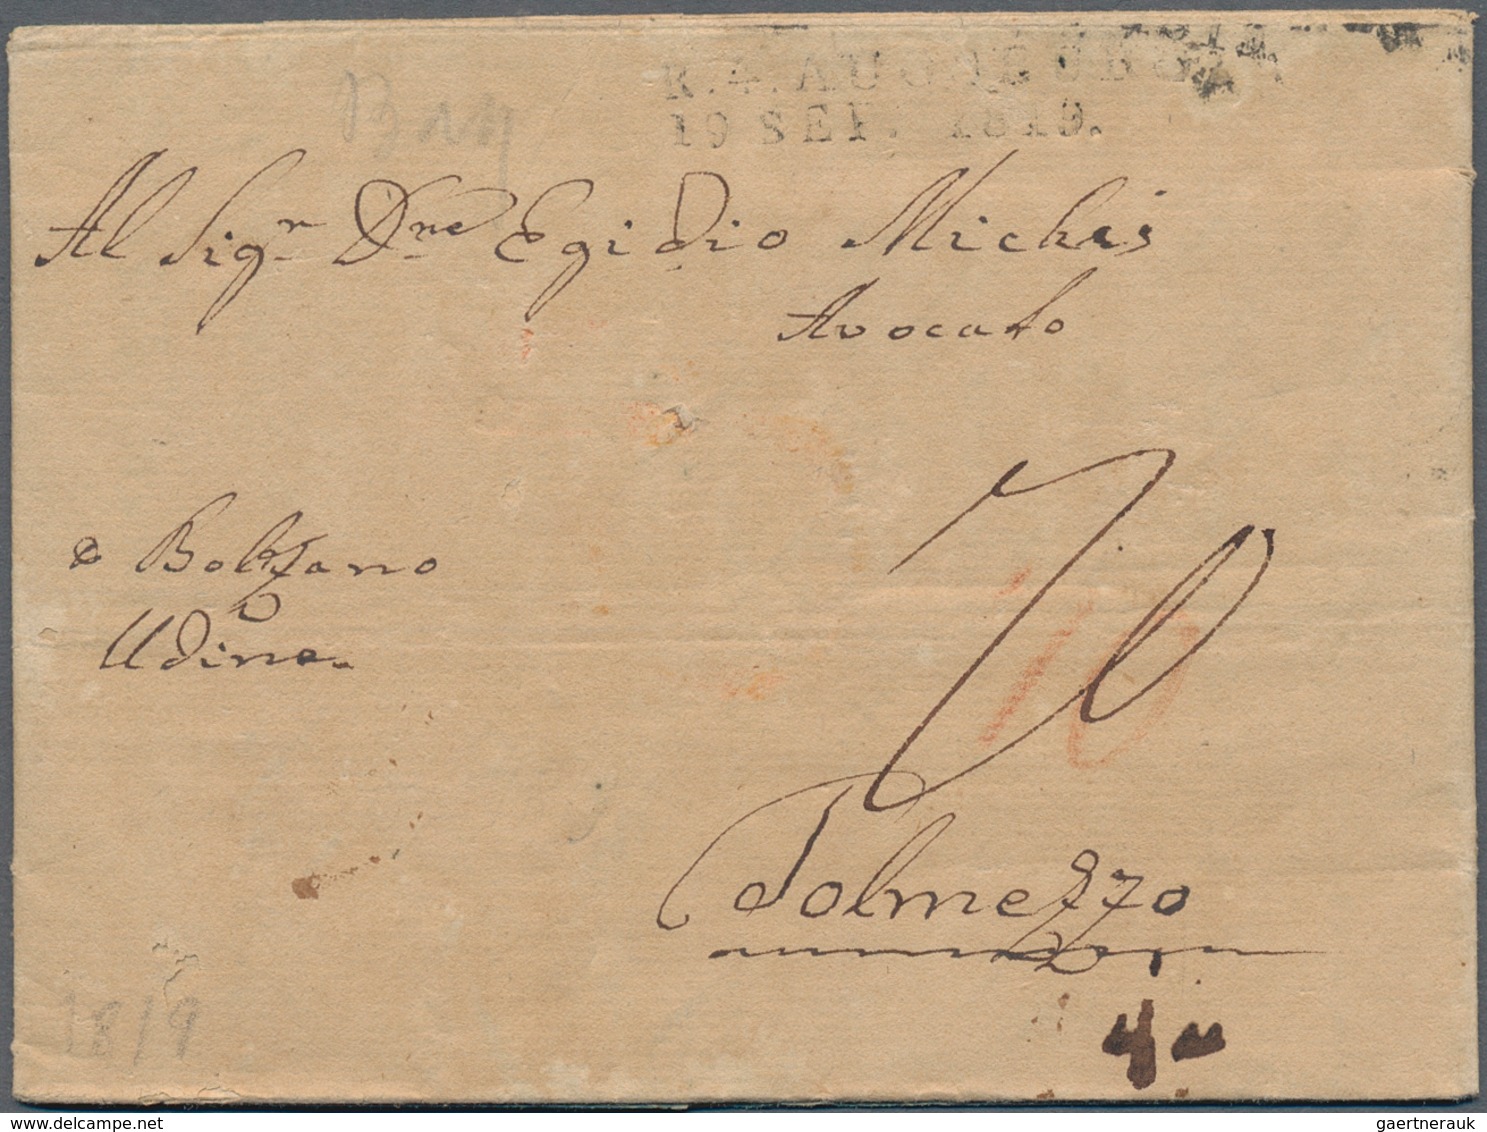 R.4.AUGSBURG.
19 SEP. 1819.
Al Sigr. Dre Egidio Michis
Avocato
Bolzano
Udine
10
Tolmezzo
1819
gaertnerauk